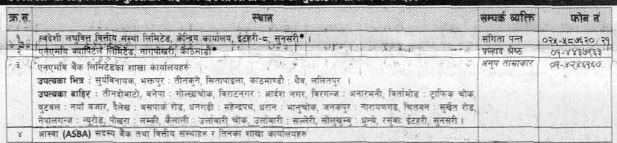 क्र.सं. स्थान सम्पर्क व्यक्ति फोन नं
१ स्वदेशी लघुवित्त वित्तीय संस्था लिमिटेड, केन्द्रिय कार्यालय, ईटहरी-८, सुनसरी* । संगिता पन्त ०२५-५८७६२०/२१
२ एनएमबि क्यापिटल लिमिटेड, नागपोखरी, काठमाडौं* प्रल्हाद श्रेष्ठ ०१-४४३७९६३
३ एनएमबि बैंक लिमिटेडका शाखा कार्यालयहरु अनुप ताम्राकार ०१-४२४६१६०
उपत्यका भित्र : सुर्यविनायक, भक्तपुर : तीनकुने, सितापाइला, काठमाण्डौ : चैव, ललितपुर ।
उपत्यका बाहिर : तीनदोबाटो, बनेपा : गोल्छाचोक, विराटनगर : आर्दश नगर, विरगन्ज : अनारमनी, विर्तामोड : ट्राफिक चोक,
बुटवल : नयाँ बजार, दैलेख : बसपार्क रोड, धनगढी : महेन्द्रपथ, धरान : भानुचोक, जनकपुर : नारायणगढ, चितवन : सुर्खेत रोड,
नेपालगन्ज : न्यूरोड, पोखरा : लम्की, कैलाली : उर्लाबारी चोक, उर्लाबारी : सल्लेरी, सोलुखुम्बु : धुन्चे, रसुवा ईटहरी, सुनसरी ।
४ आस्वा (ASBA) सदस्य बैंक तथा वित्तीय संस्थाहरु र तिनका शाखा कार्यालयहरु